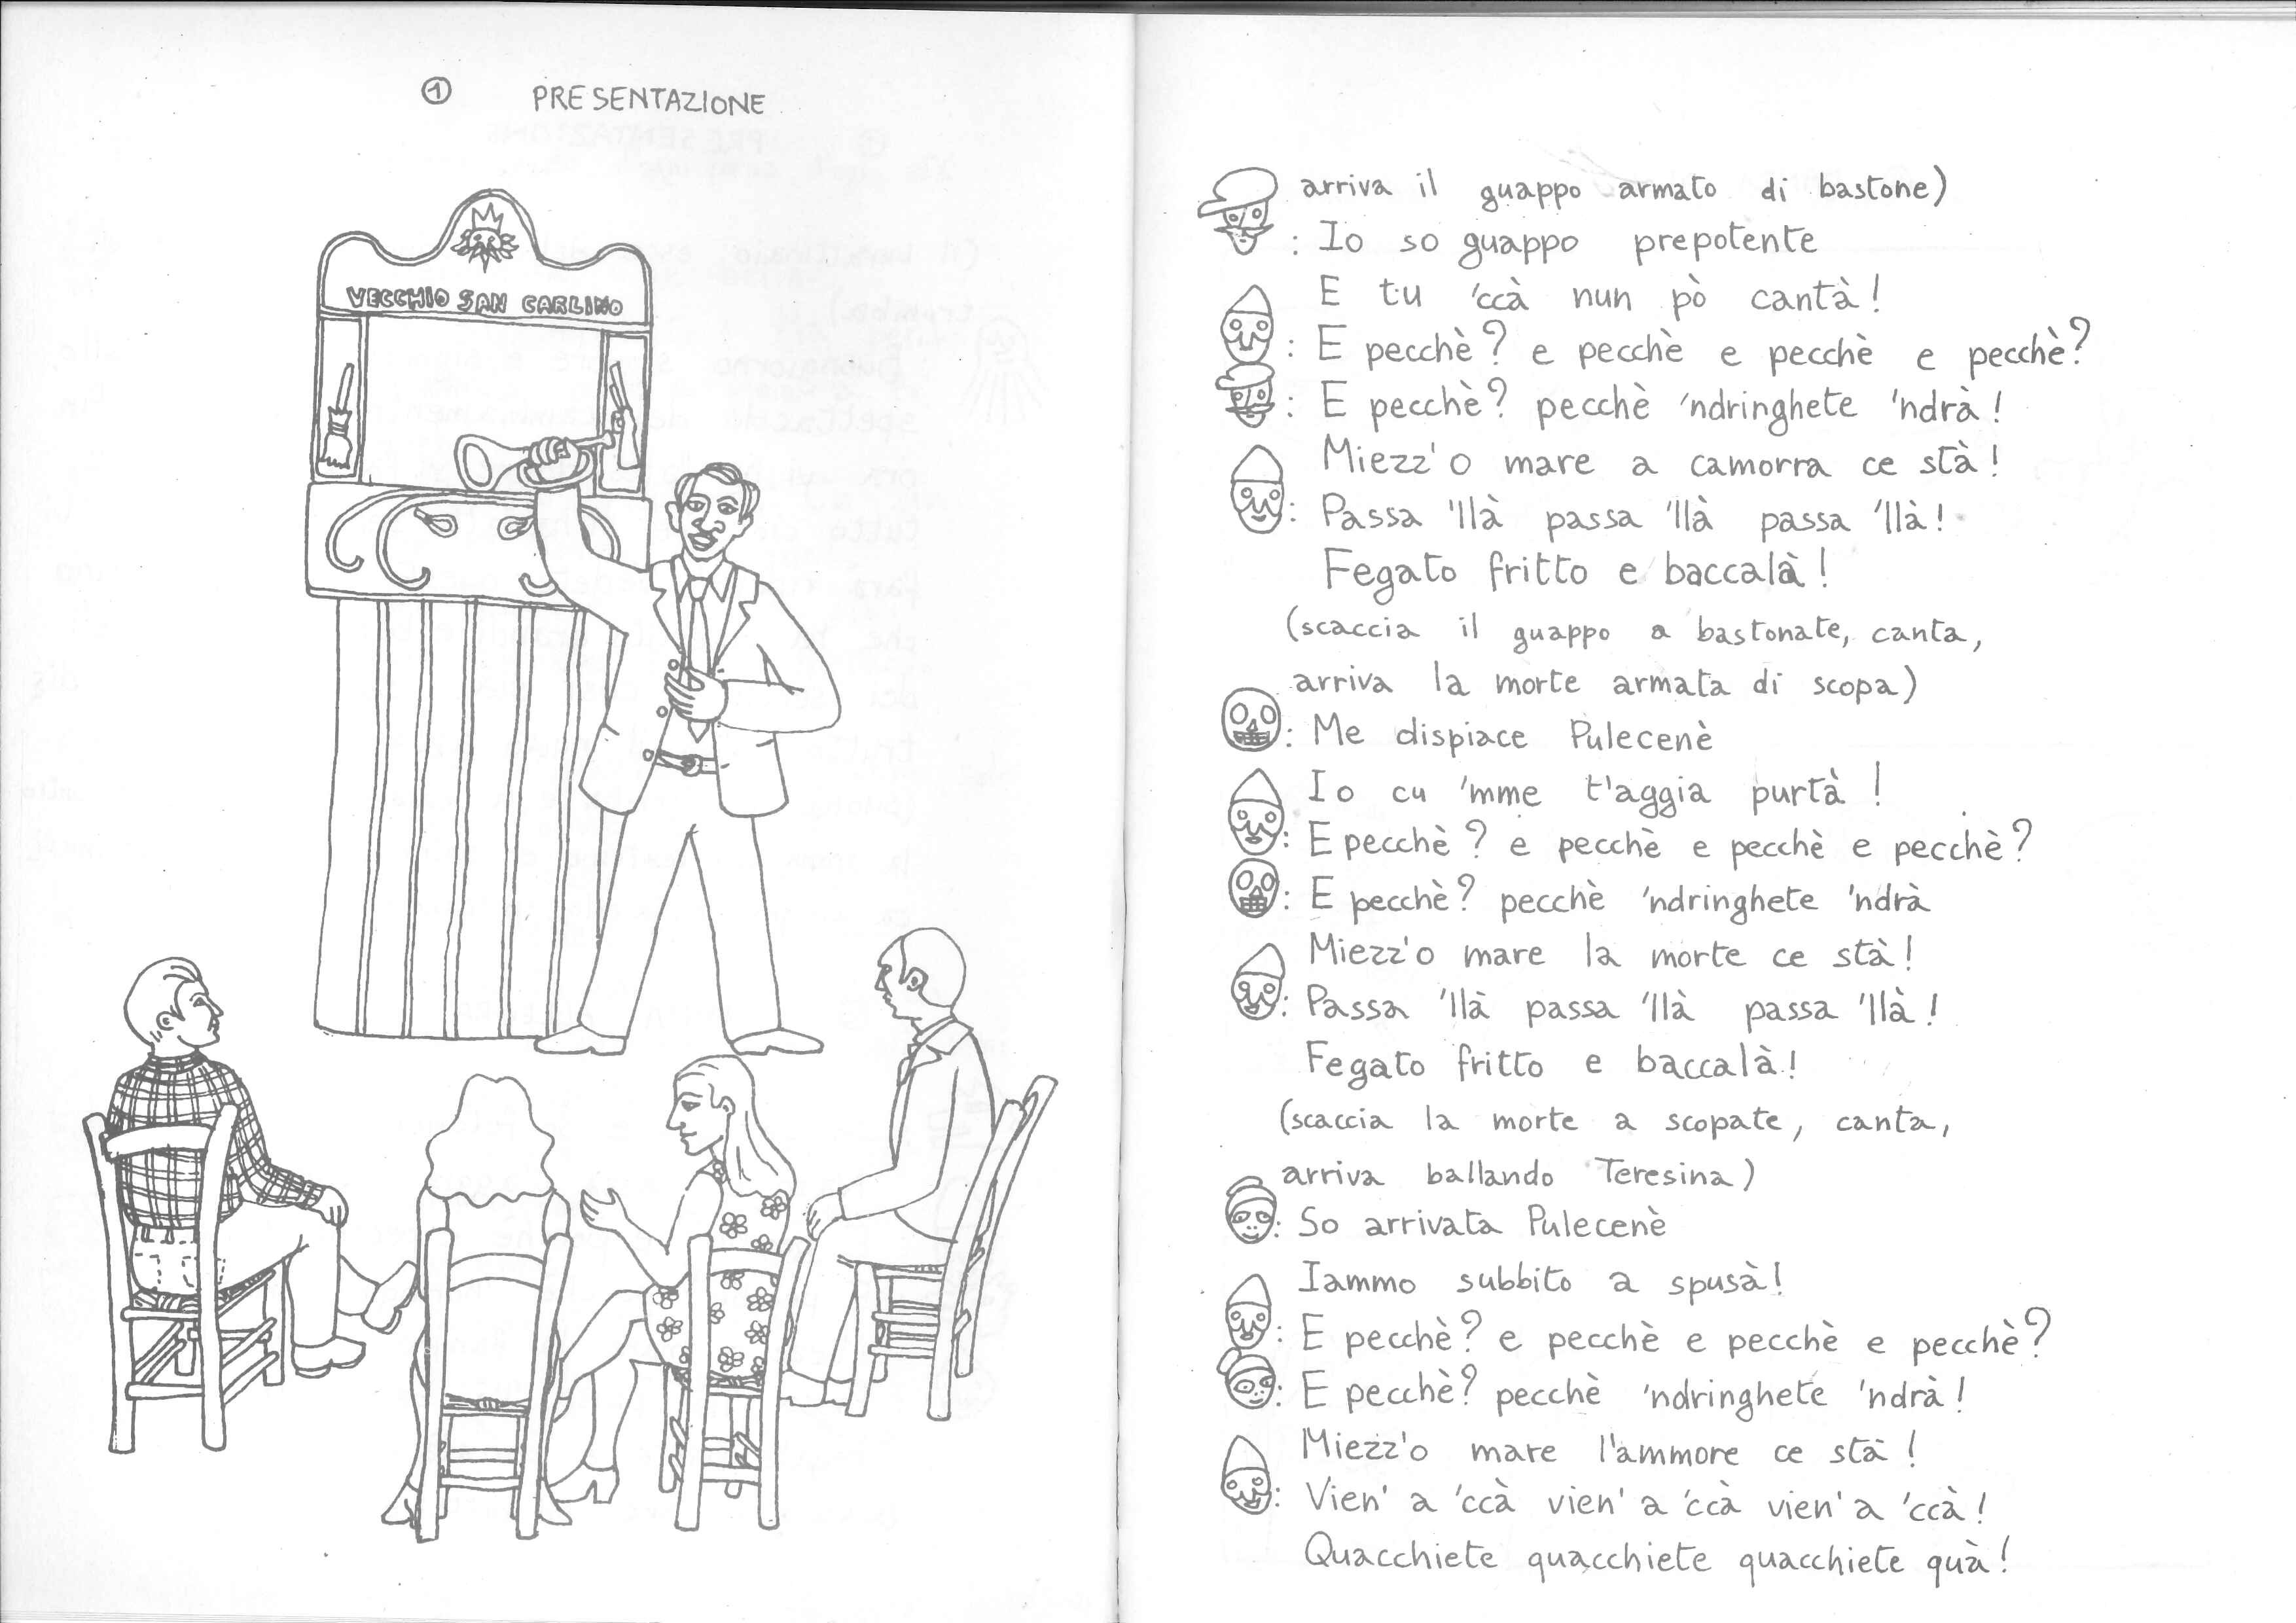 ① PRESENTAZIONE
VECCHIO SAN CARLINO
arriva il guappo armato di bastone)
: Io so guappo prepotente
E tu 'ccà nun pò cantà!
: E pecchè? e pecchè e pecchè e pecchè?
: E pecchè? pecchè 'ndringhete 'ndrà!
Miezz'o mare a camorra ce stà!
: Passa 'llà passa 'llà passa 'llà!
Fegato fritto e baccalà!
(scaccia il guappo a bastonate, canta,
arriva la morte armata di scopa)
: Me dispiace Pulecenè
Io cu 'mme t'aggia purtà!
: E pecchè? e pecchè e pecchè e pecchè?
: E pecchè? pecchè 'ndringhete 'ndrà
Miezz'o mare la morte ce stà!
: Passa 'llà passa 'llà passa 'llà!
Fegato fritto e baccalà!
(scaccia la morte a scopate, canta,
arriva ballando Teresina)
: So arrivata Pulecenè
Iammo subbito a spusà!
: E pecchè? e pecchè e pecchè e pecchè?
: E pecchè? pecchè 'ndringhete 'ndrà!
Miezz'o mare l'ammore ce stà!
: Vien' a 'ccà vien' a 'ccà vien' a 'ccà!
Quacchiete quacchiete quacchiete quà!